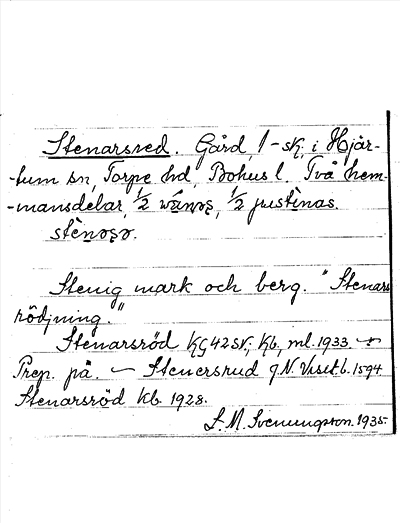 Stenarsred. Gård, 1-sk, i Hjär-
-tum sn, Torpe hd, Bohus l. Två hem-
-mansdelar, 1/2 wá̱ṉəʂ, 1/2 justènas.
stèṉəʂə.
Stenig mark och berg. "Stenars
rödjning."
Stenarsröd KG42SV, Kb, ml. 1933
Prep. på. — Stenersrud g N Viset b. 1594
Stenarsröd kb. 1928.
L. M. Svenungsson. 1935.